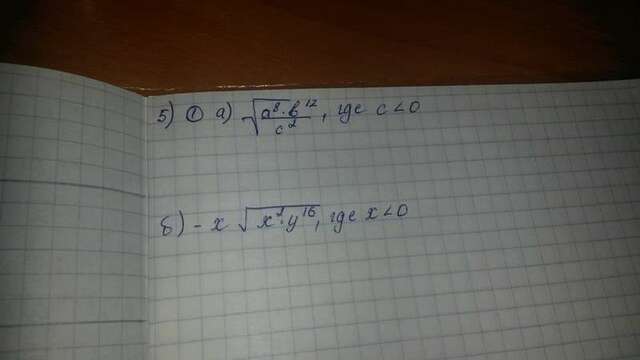 5) ① а) √(a⁸·b¹²/c²), где c<0
б) -x √(x²·y¹⁶), где x<0